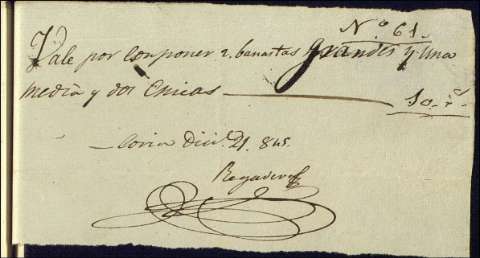 N.º 61.
Vale por Conponer 2. banastas grandes y una
media y dos Chicas 10. r.s
Coria Dici.e 21. 845.
Regadera